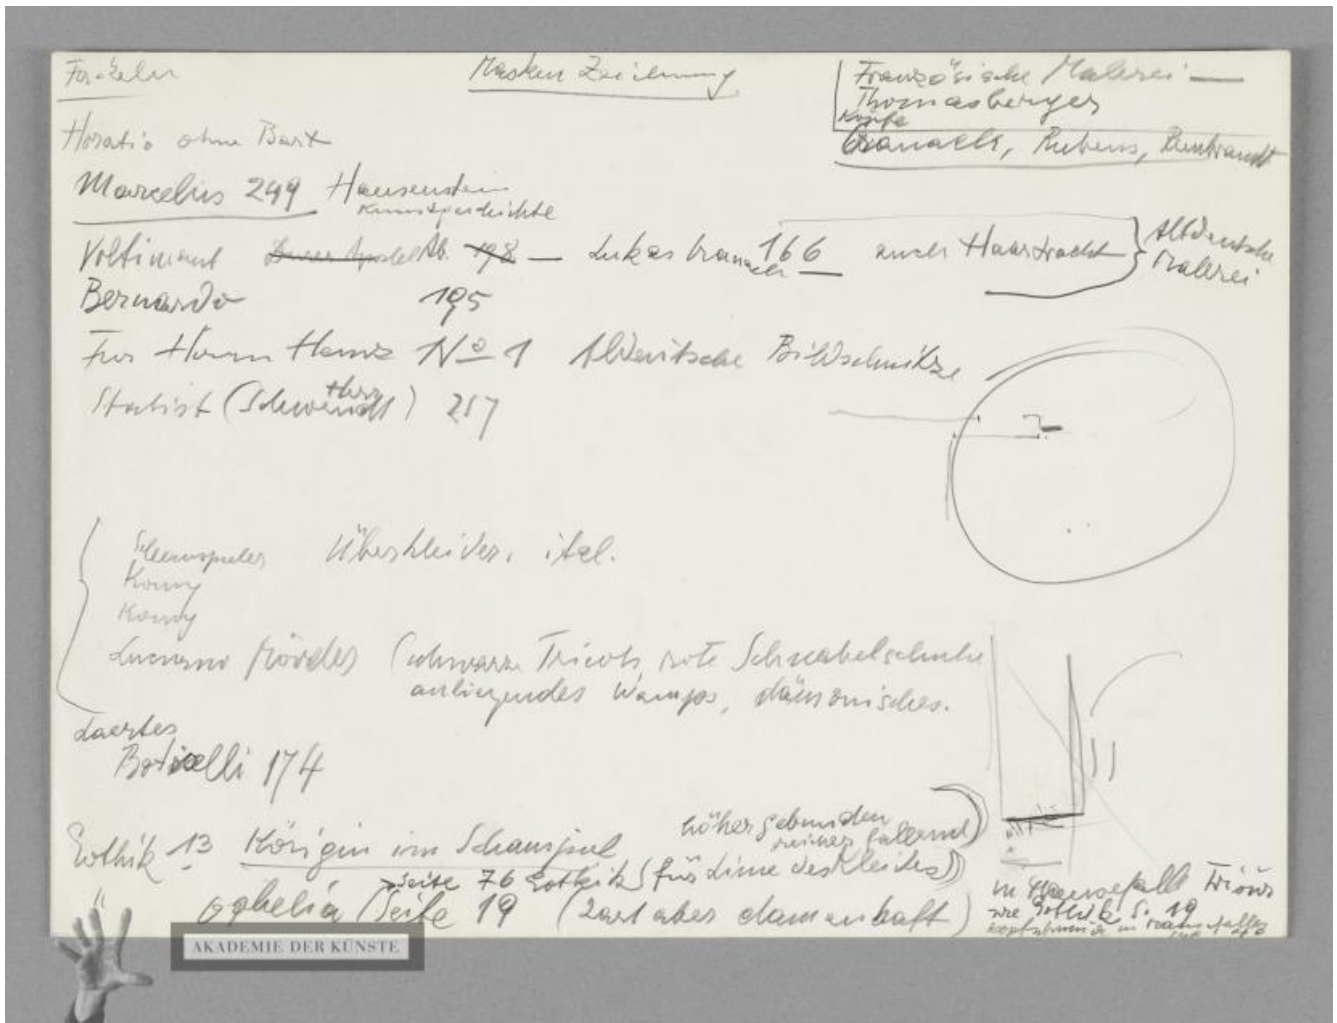 Masken Zeichnung
Französische Malerei —
Thomasberger
Köpfe
Cranach, Rubens, Rembrandt
Horatio ohne Bart
Marcelius 249 Hausenstein
Kunstgeschichte
Voltimant Ab. 198 — Lukas Cranach 166 auch Haartracht } Altdeutsche Malerei
Bernardo 195
Für Herrn Heinz No 1 Altdeutsche Bildschnitze
Statist ( ) 217
Schauspieler Überkleider, ital.
König
König
Luciano Mörder (schwarze Tricots rote Schnabelschuhe
anliegendes Wamps, dämonisches.
Laertes
Boticelli 174
höher gebunden
weicher fallend)
Gothik 13 Königin im Schauspiel
Seite 76 Gothik (für Linie des Kleides)
" Ophelia (Seite 19 (zart aber damenhaft)
in Mausefalle
wie Gothik S. 19
AKADEMIE DER KÜNSTE